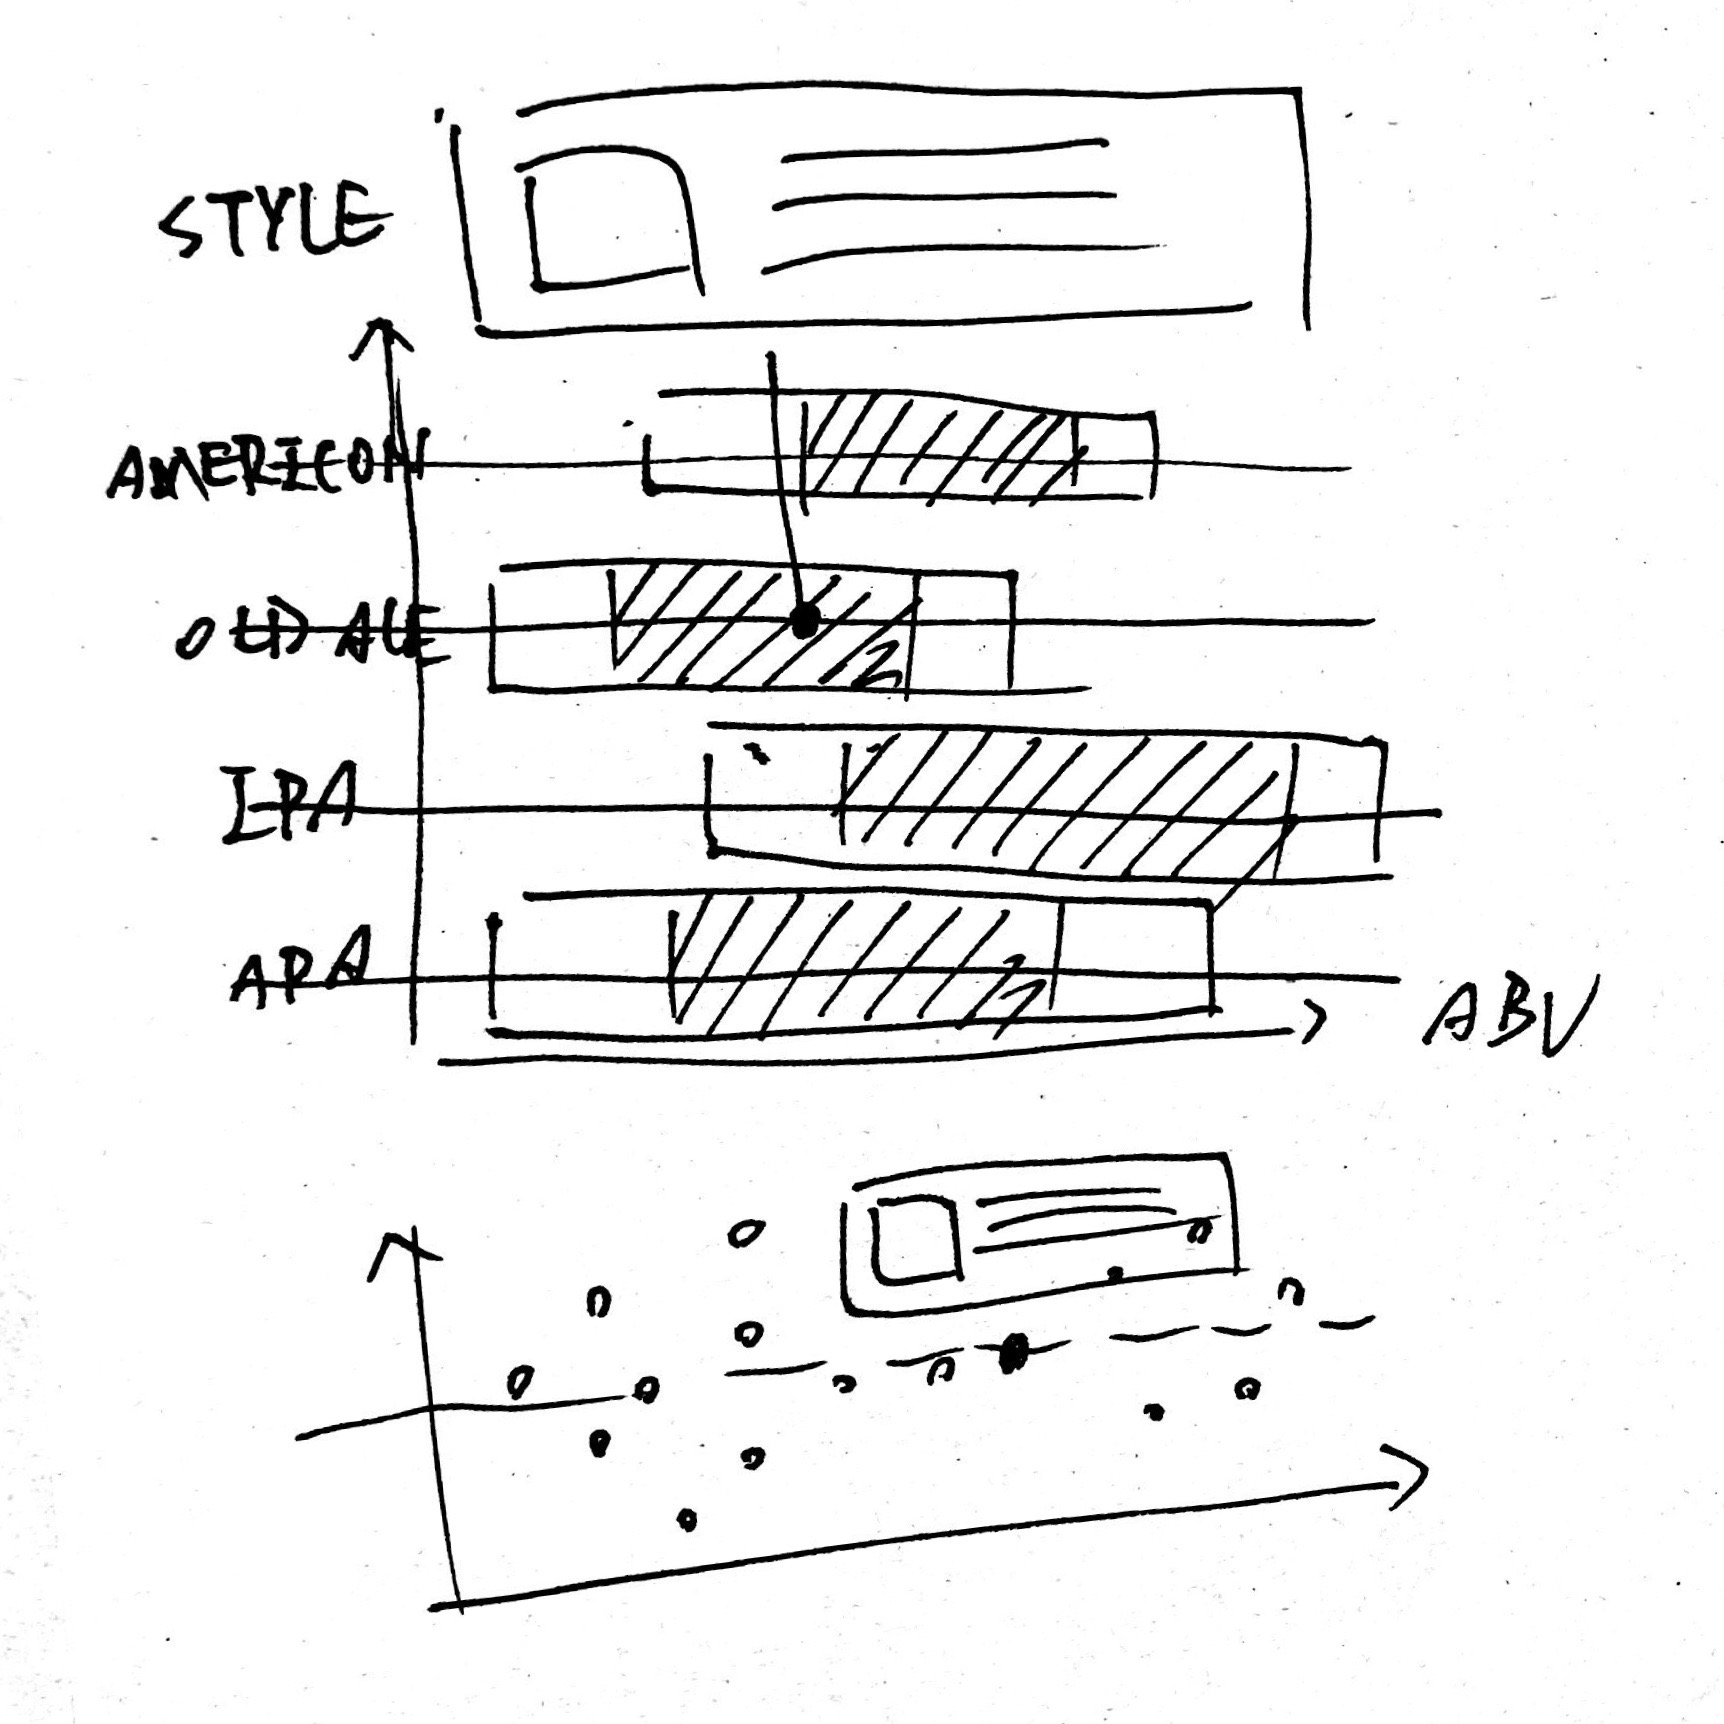 STYLE
AMERICON
OLD ALE
IPA
APA
ABV